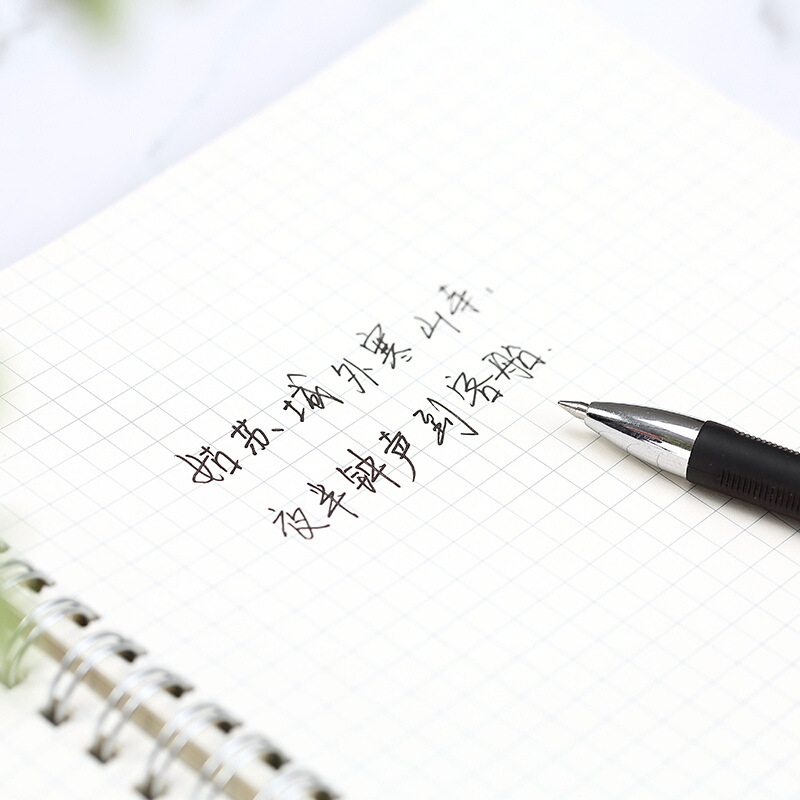 姑苏城外寒山寺.
夜半钟声到客船.